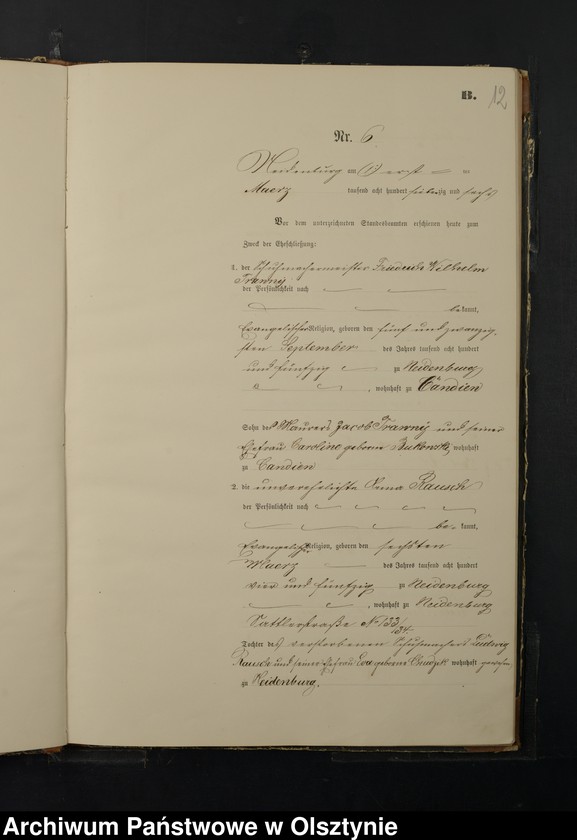 B. 12
Nr. 6
Neidenburg am (1) erst en
Maerz tausend acht hundert siebenzig und sechs
Vor dem unterzeichneten Standesbeamten erschienen heute zum
Zweck der Eheschließung:
1. der Schuhmachermeister Friedrich Wilhelm
Trawny
der Persönlichkeit nach
bekannt,
Evangelischer Religion, geboren den fünf und zwanzig-
sten September des Jahres tausend acht hundert
und fünfzig zu Neidenburg
, wohnhaft zu Candien
Sohn des Maurers Jacob Trawny und seiner
Ehefrau Caroline geborene wohnhaft
zu Candien
2. die unverehelichte Rausch
der Persönlichkeit nach
bekannt,
Evangelischer Religion, geboren den sechsten
Maerz des Jahres tausend acht hundert
vier und fünfzig zu Neidenburg
, wohnhaft zu Neidenburg
Sattlerstraße No 133/134
Tochter des verstorbenen Schuhmachers Ludwig
Rausch und seiner Ehefrau geborene wohnhaft
zu Neidenburg.
Archiwum Państwowe w Olsztynie